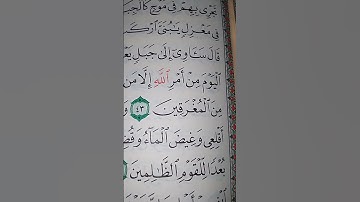 تَجْرِى بِهِمْ فِى مَوْجٍ كَالْجِبَا
فِى مَعْزِلٍ يَٰبُنَىَّ ارْكَ
قَالَ سَـَٔاوِىٓ إِلَىٰ جَبَلٍ يَعْ
الْيَوْمَ مِنْ أَمْرِ اللَّهِ إِلَّا مَن
مِنَ الْمُغْرَقِينَ ٤٣ وَ
أَقْلِعِى وَغِيضَ الْمَآءُ وَقُضِ
بُعْدًا لِّلْقَوْمِ الظَّٰلِمِينَ